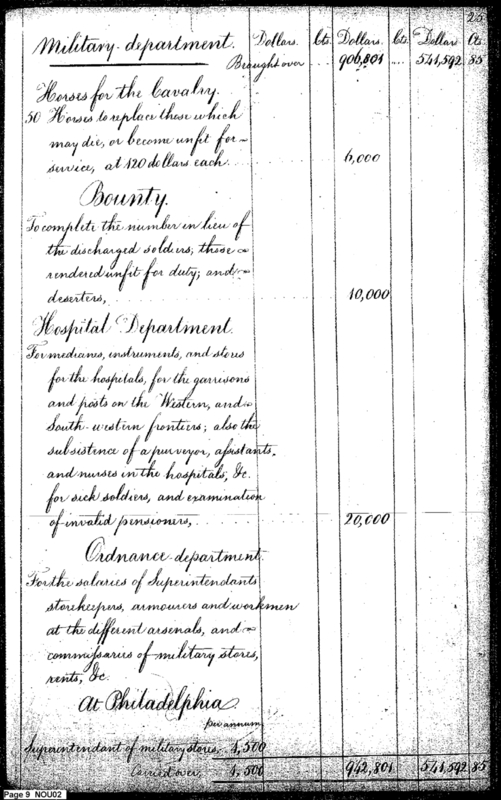 25
Military department. Dollars. Cts. Dollars. Cts. Dollars Cts.
Brought over ... 906,801 .... 541,592 85
Horses for the Cavalry.
50 Horses to replace those which
may die, or become unfit for
service, at 120 dollars each 6,000
Bounty.
To complete the number in lieu of
the discharged soldiers; those
rendered unfit for duty; and
deserters, 10,000
Hospital Department.
For medicines, instruments, and stores
for the hospitals, for the garrisons
and posts on the Western, and
South-western frontiers; also the
subsistence of a purveyor, assistants,
and nurses in the hospitals, &c.
for sick soldiers, and examination
of invalid pensioners, 20,000
Ordnance department.
For the salaries of Superintendants
storekeepers, armourers and workmen
at the different arsenals, and
commissaries of military stores,
rents, &c.
At Philadelphia
per annum
Superintendant of military stores. 1,500
Carried over, 1,500 942,801 541,592 85
Page 9 NOU02